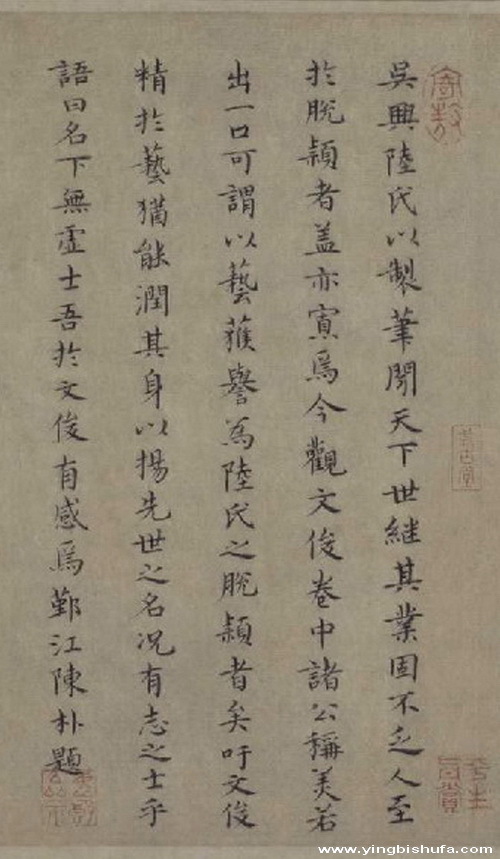 吳興陸氏以製筆聞天下世繼其業固不乏人至
於脫穎者蓋亦寡焉今觀文俊卷中諸公稱美若
出一口可謂以藝獲譽為陸氏之脫穎者矣吁文俊
精於藝猶能潤其身以揚先世之名況有志之士乎
語曰名下無虛士吾於文俊有感焉鄞江陳朴題
www.yingbishufa.com